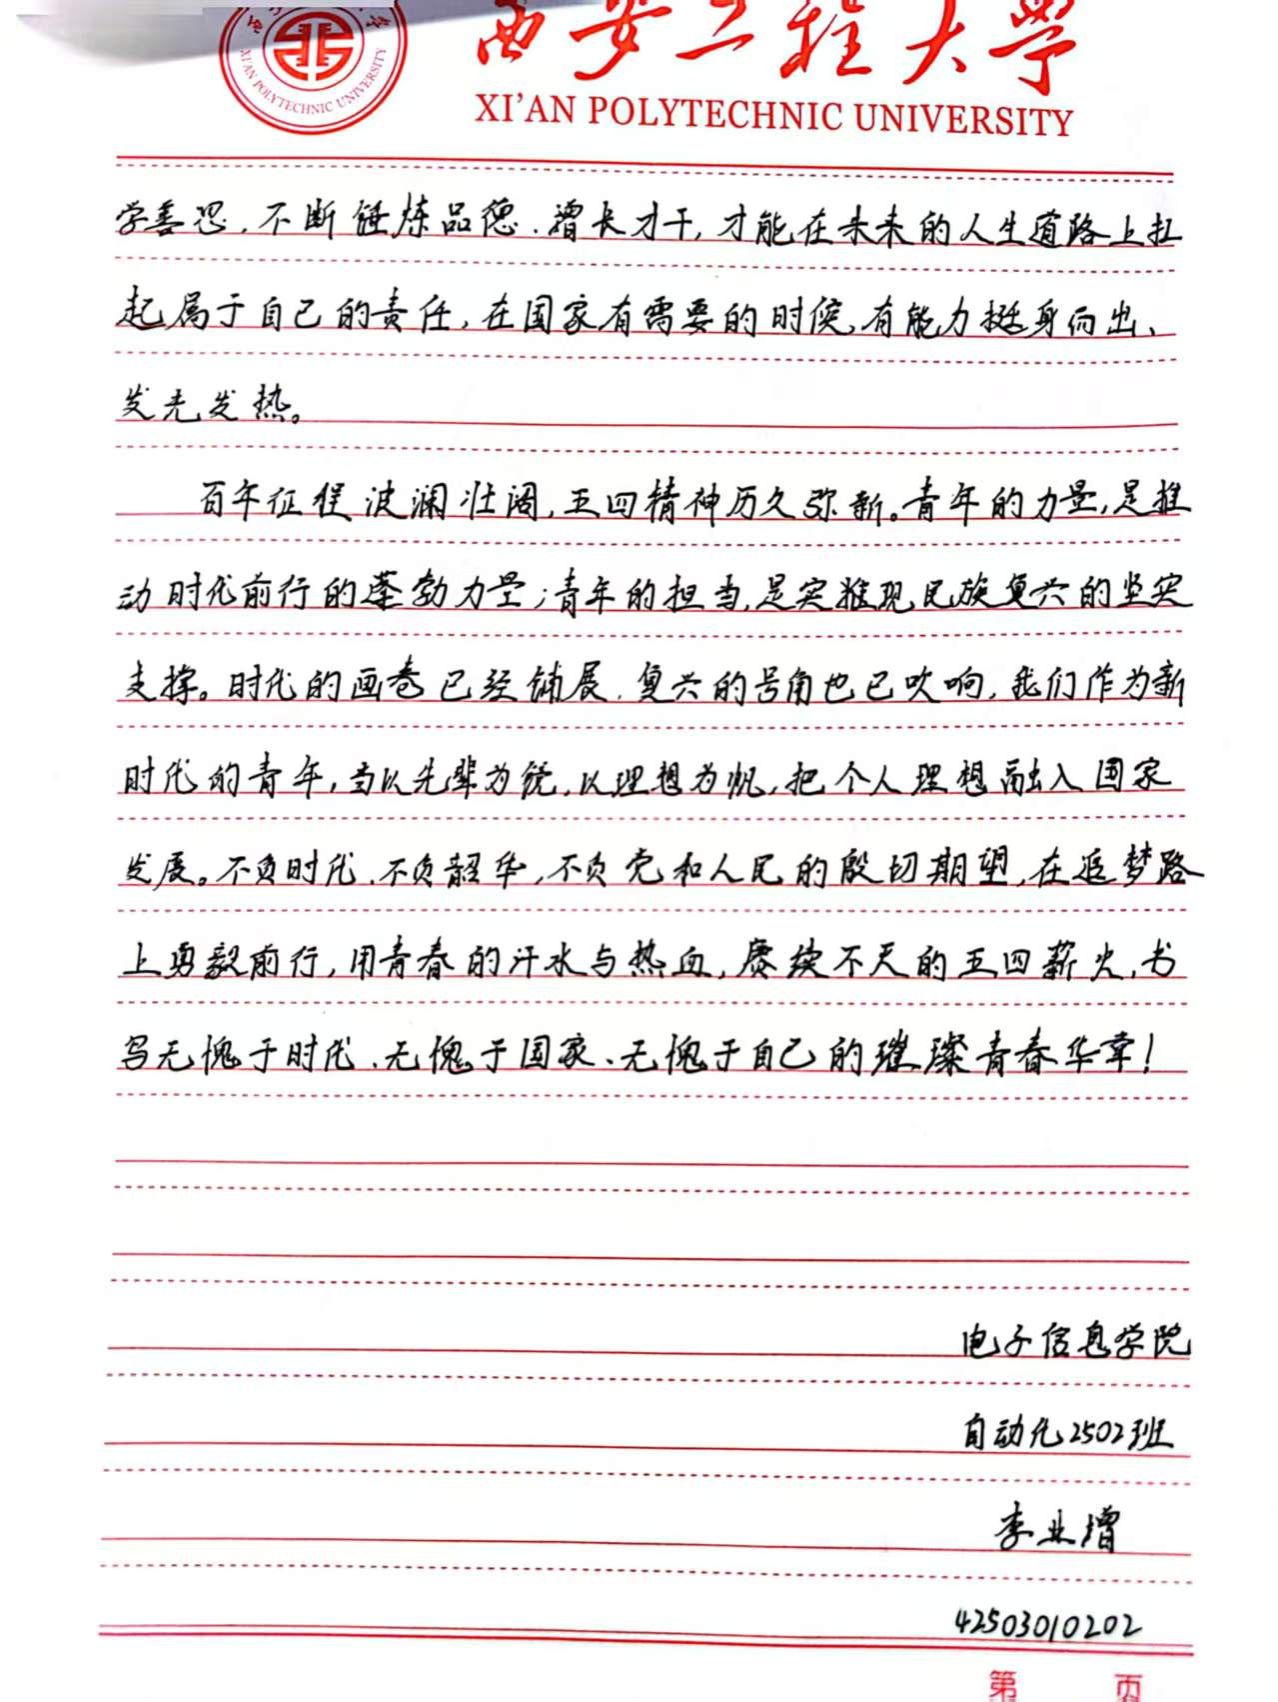 西安工程大學
XI'AN POLYTECHNIC UNIVERSITY
XI'AN POLYTECHNIC UNIVERSITY
学善思,不断锤炼品德、增长才干,才能在未来的人生道路上扛
起属于自己的责任,在国家有需要的时候,有能力挺身而出、
发光发热。
百年征程波澜壮阔,五四精神历久弥新。青年的力量,是推
动时代前行的蓬勃力量;青年的担当,是实推现民族复兴的坚实
支撑。时代的画卷已经铺展,复兴的号角也已吹响,我们作为新
时代的青年,当以先辈为镜,以理想为帆,把个人理想融入国家
发展。不负时代、不负韶华,不负党和人民的殷切期望,在追梦路
上勇毅前行,用青春的汗水与热血,赓续不灭的五四薪火,书
写无愧于时代、无愧于国家、无愧于自己的璀璨青春华章!
电子信息学院
自动化2502班
李业增
42503010202
第 页